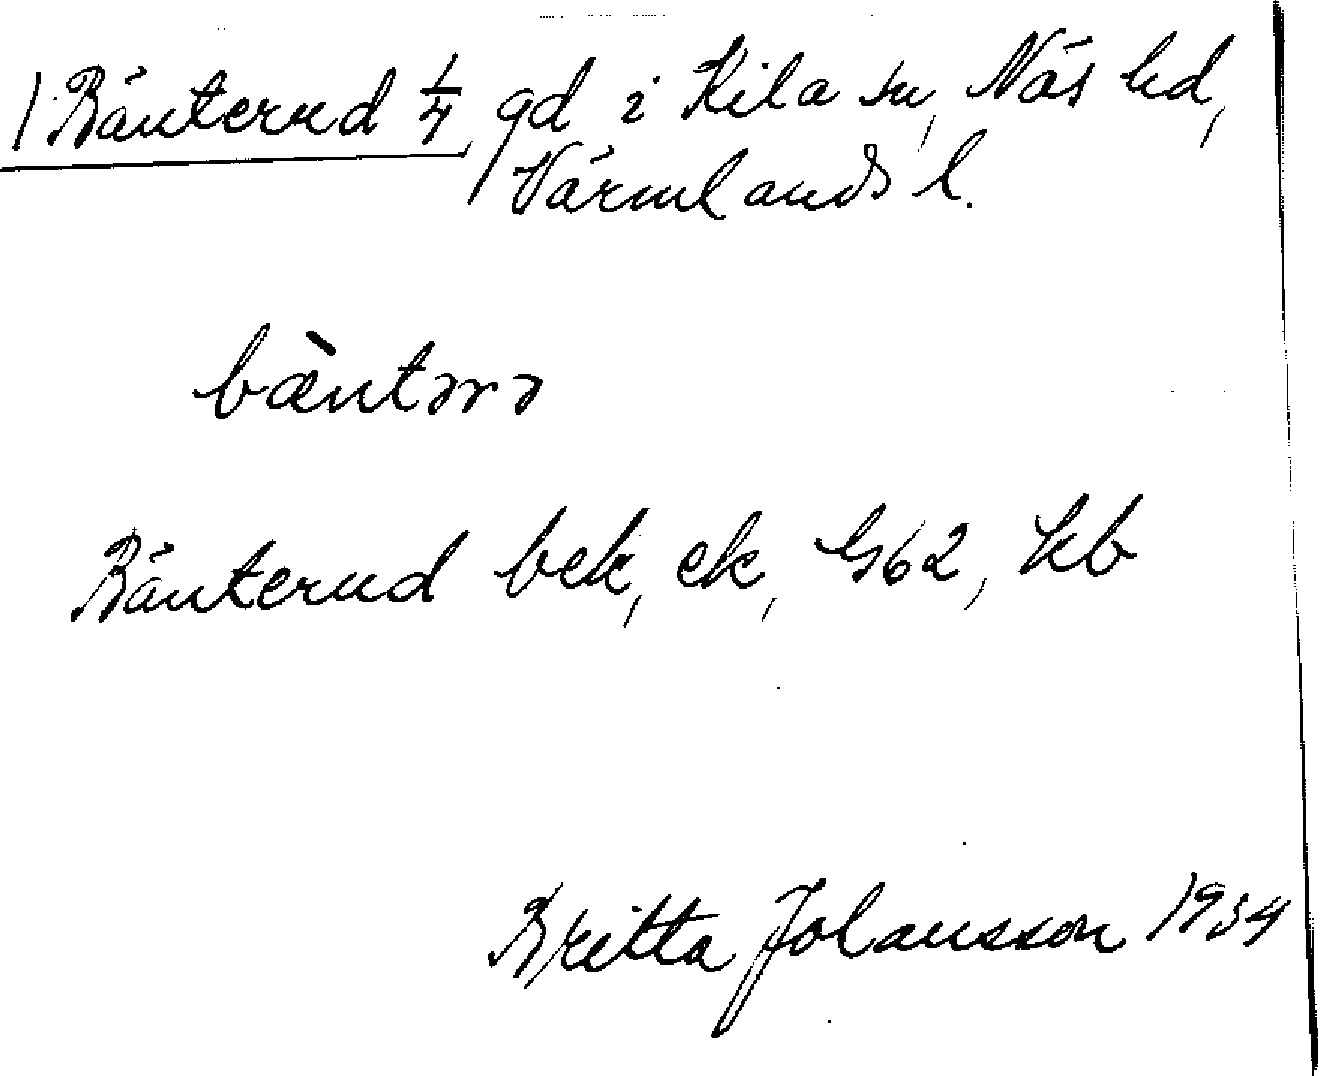 1 Bänterud 1/4, gd i Kila sn, Näs hd,
Värmlands l.
bæ̀ntərə
Bänterud bek, ek, G62, kb
Britta Johansson 1934